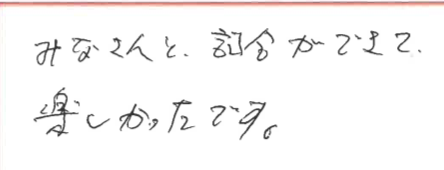 みなさんと、試合ができて、
楽しかったです。